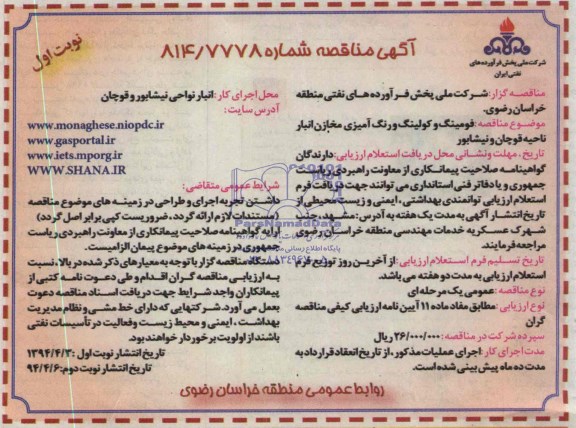 نوبت اول
آگهی مناقصه شماره ۸۱۴/۷۷۷۸
شرکت ملی پخش فرآورده‌های نفتی ایران
مناقصه گزار: شرکت ملی پخش فرآورده های نفتی منطقه
خراسان رضوی.
موضوع مناقصه: فومینگ و کولینگ و رنگ آمیزی مخازن انبار
ناحیه قوچان و نیشابور
تاریخ، مهلت ونشانی محل دریافت استعلام ارزیابی: دارندگان
گواهینامه صلاحیت پیمانکاری از معاونت راهبردی ریاست
جمهوری و یا دفاتر فنی استانداری می توانند جهت دریافت فرم
استعلام ارزیابی توانمندی بهداشتی، ایمنی و زیست محیطی از
تاریخ انتشار آگهی به مدت یک هفته به آدرس: مشهد، جنب
شهرک عسکریه خدمات مهندسی منطقه خراسان رضوی
مراجعه فرمایند.
تاریخ تسلیم فرم استعلام ارزیابی: از آخرین روز توزیع فرم
استعلام ارزیابی به مدت دو هفته می باشد.
نوع مناقصه: عمومی یک مرحله ای
نوع ارزیابی: مطابق مفاد ماده ۱۱ آیین نامه ارزیابی کیفی مناقصه
گران
سپرده شرکت در مناقصه: ۲۶/۰۰۰/۰۰۰ ریال
مدت اجرای کار: اجرای عملیات مذکور، از تاریخ انعقاد قرارداد به
مدت ده ماه پیش بینی شده است.
محل اجرای کار: انبار نواحی نیشابور و قوچان
آدرس سایت:
www.monaghese.niopdc.ir
www.gasportal.ir
www.iets.mporg.ir
WWW.SHANA.IR
شرایط عمومی متقاضی:
داشتن تجربه اجرای و طراحی در زمینه های موضوع مناقصه
(مستندات لازم ارائه گردد، ضروریست کپی برابر اصل گردد)
ارایه گواهینامه صلاحیت پیمانکاری از معاونت راهبردی ریاست
جمهوری در زمینه های موضوع پیمان الزامیست.
دستگاه مناقصه گزار با توجه به معیارهای ذکر شده در بالا، نسبت
به ارزیابی مناقصه گران اقدام و طی دعوت نامه کتبی از
پیمانکاران واجد شرایط جهت دریافت اسناد مناقصه دعوت
بعمل می آورد. شرکتهایی که دارای خط مشی و نظام مدیریت
بهداشت، ایمنی و محیط زیست و فعالیت در تأسیسات نفتی
باشند از اولویت برخوردار خواهند بود.
تاریخ انتشار نوبت اول: ۱۳۹۴/۴/۳
تاریخ انتشار نوبت دوم: ۹۴/۴/۶
روابط عمومی منطقه خراسان رضوی
ParsNamadData